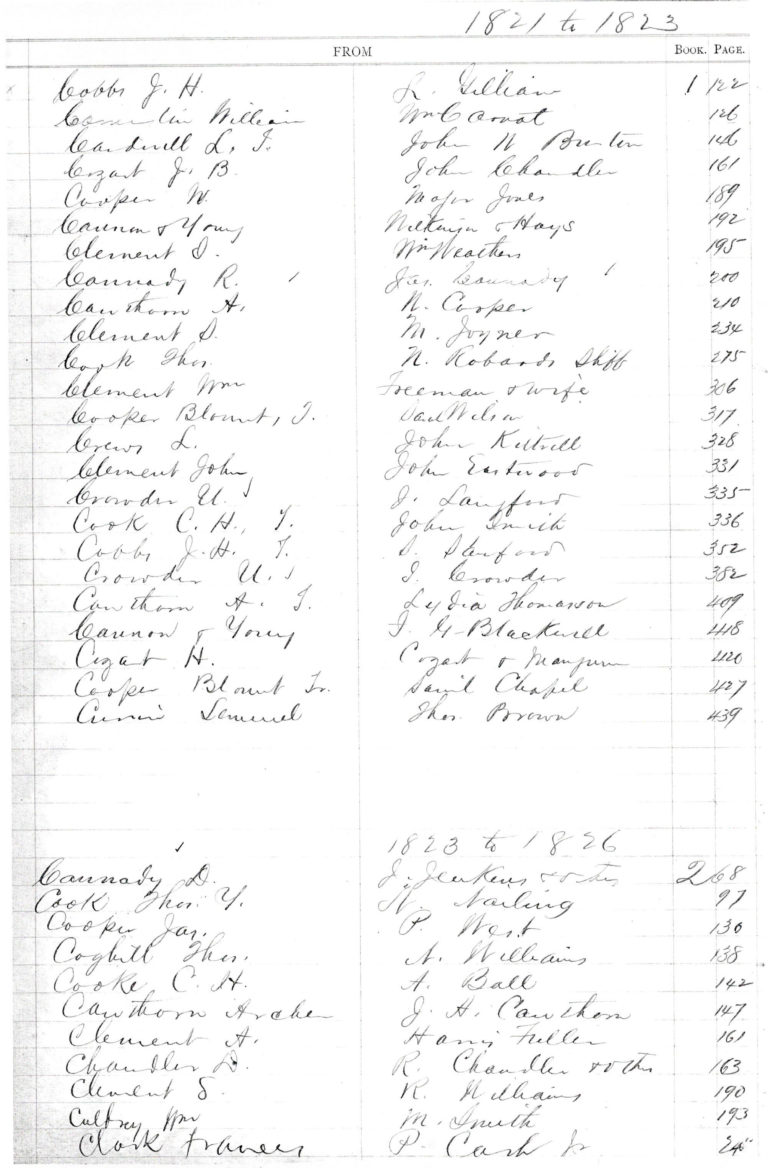 1821 to 1823
FROM BOOK. PAGE.
Cobbs J. H. L. Gilliam 1 122
William Wm 126
Cardwell L, T. John W Burton 146
Cozart J. B. John Chandler 161
Cooper W. Major Jones 189
Cannon & Young Wilkinson & Hays 192
Clement S. Wm Weathers 195
Cannady R. Jas. Cannady 200
Cawthorn A. N. Cooper 210
Clement S. M. Joyner 234
Cook Thos. N. Robards Shff 275
Clement Wm Freeman & wife 306
Cooper Blount, T. Wilson 317
Crews L. John Kittrell 328
Clement John John Eastwood 331
Crowder U. J. Langford 335
Cook C. H, T. John Smith 336
Cobbs J. H. T. S. 352
Crowder U. J. Crowder 382
Cawthorn A. T. Lydia Thomasson 409
Cannon & Young J. G Blackwell 418
Cozart H. Cozart & Mangum 420
Cooper Blount Tr. Saml Chapel 427
Lemuel Thos. Brown 439
1823 to 1826
Cannady D. J. Jenkins & oths 2 68
Cook Thos. Y. N. Nailing 97
Cooper Jas. P. West 130
Coghill Thos. N. Williams 138
Cooke C. H. A. Ball 142
Cawthorn Archer J. H. Cawthorn 147
Clement A. Harris Fuller 161
Chandler D. R. Chandler & oths 163
Clement S. R. Williams 190
Wm M. Smith 193
Clark Frances P. Cash Jr